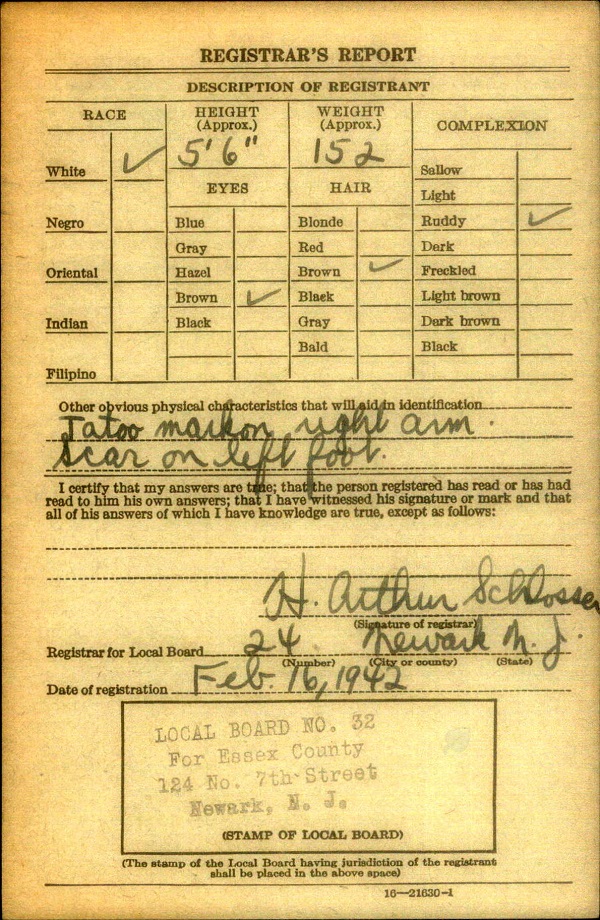 REGISTRAR'S REPORT
DESCRIPTION OF REGISTRANT
RACE
HEIGHT
(Approx.)
WEIGHT
(Approx.)
COMPLEXION
White ✓
5'6"
152
Sallow
EYES
HAIR
Light
Negro
Blue
Blonde
Ruddy ✓
Gray
Red
Dark
Oriental
Hazel
Brown ✓
Freckled
Brown ✓
Black
Light brown
Indian
Black
Gray
Dark brown
Bald
Black
Filipino
Other obvious physical characteristics that will aid in identification
Tatoo mark on right arm.
Scar on left foot.
I certify that my answers are true; that the person registered has read or has had
read to him his own answers; that I have witnessed his signature or mark and that
all of his answers of which I have knowledge are true, except as follows:
H. Arthur Schlosser
(Signature of registrar)
Registrar for Local Board 24 Newark N. J.
(Number) (City or county) (State)
Date of registration Feb. 16, 1942
LOCAL BOARD NO. 32
For Essex County
124 No. 7th Street
Newark, N. J.
(STAMP OF LOCAL BOARD)
(The stamp of the Local Board having jurisdiction of the registrant
shall be placed in the above space)
16—21630-1